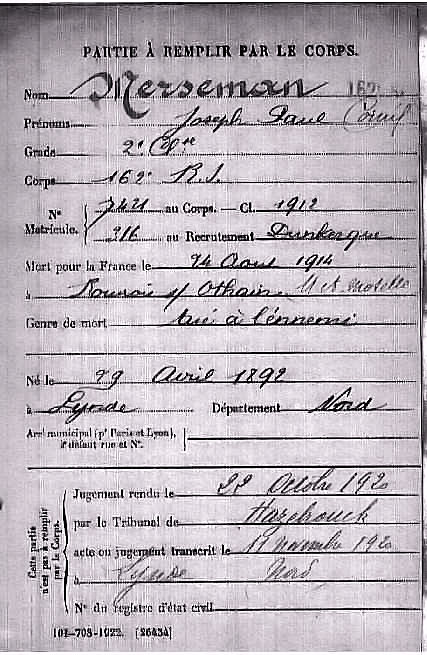 PARTIE À REMPLIR PAR LE CORPS.
Nom Merseman
Prénoms Joseph Paul Cornil
Grade 2e Clre
Corps 162e R.I.
N° Matricule. 7421 au Corps. — Cl. 1912
216 au Recrutement Dunkerque
Mort pour la France le 24 Aout 1914
à s/ Othain M et Moselle
Genre de mort tué à l'énnemi
Né le 29 Avril 1892
à Lynde Département Nord
Arrt municipal (pr Paris et Lyon), à défaut rue et N°.
Cette partie n'est pas à remplir par le Corps.
Jugement rendu le 22 Octobre 1920
par le Tribunal de Hazebrouck
acte ou jugement transcrit le 11 novembre 1920
à Lynde Nord
N° du registre d'état civil
101-708-1922. [26434]